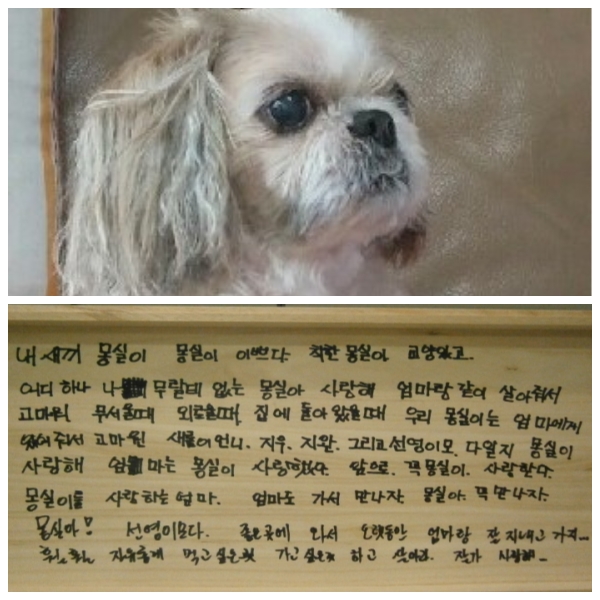 내새끼 몽실이 몽실이 이쁘다. 착한 몽실아
어디 하나 나무랄데 없는 몽실아 사랑해 엄마랑 같이 살아줘서
고마워 무서울때 외로울때, 집에 돌아 있을때 우리 몽실이는 엄마에게
있어줘서 고마워 언니. 지우. 지완. 그리고 선영이모. 다 알지 몽실이
사랑해 엄마는 몽실이 사랑했다. 앞으로. 꼭 몽실이. 사랑한다.
몽실이를 사랑하는 엄마. 엄마도 가서 만나자. 몽실아. 꼭 만나자.
몽실아! 선영이모다. 좋은곳에 와서 오랫동안 엄마랑 잘 지내고 가지...
훨~훨~ 자유롭게 먹고싶은것 가고싶은곳 하고 살아라. 잘가 사랑해~